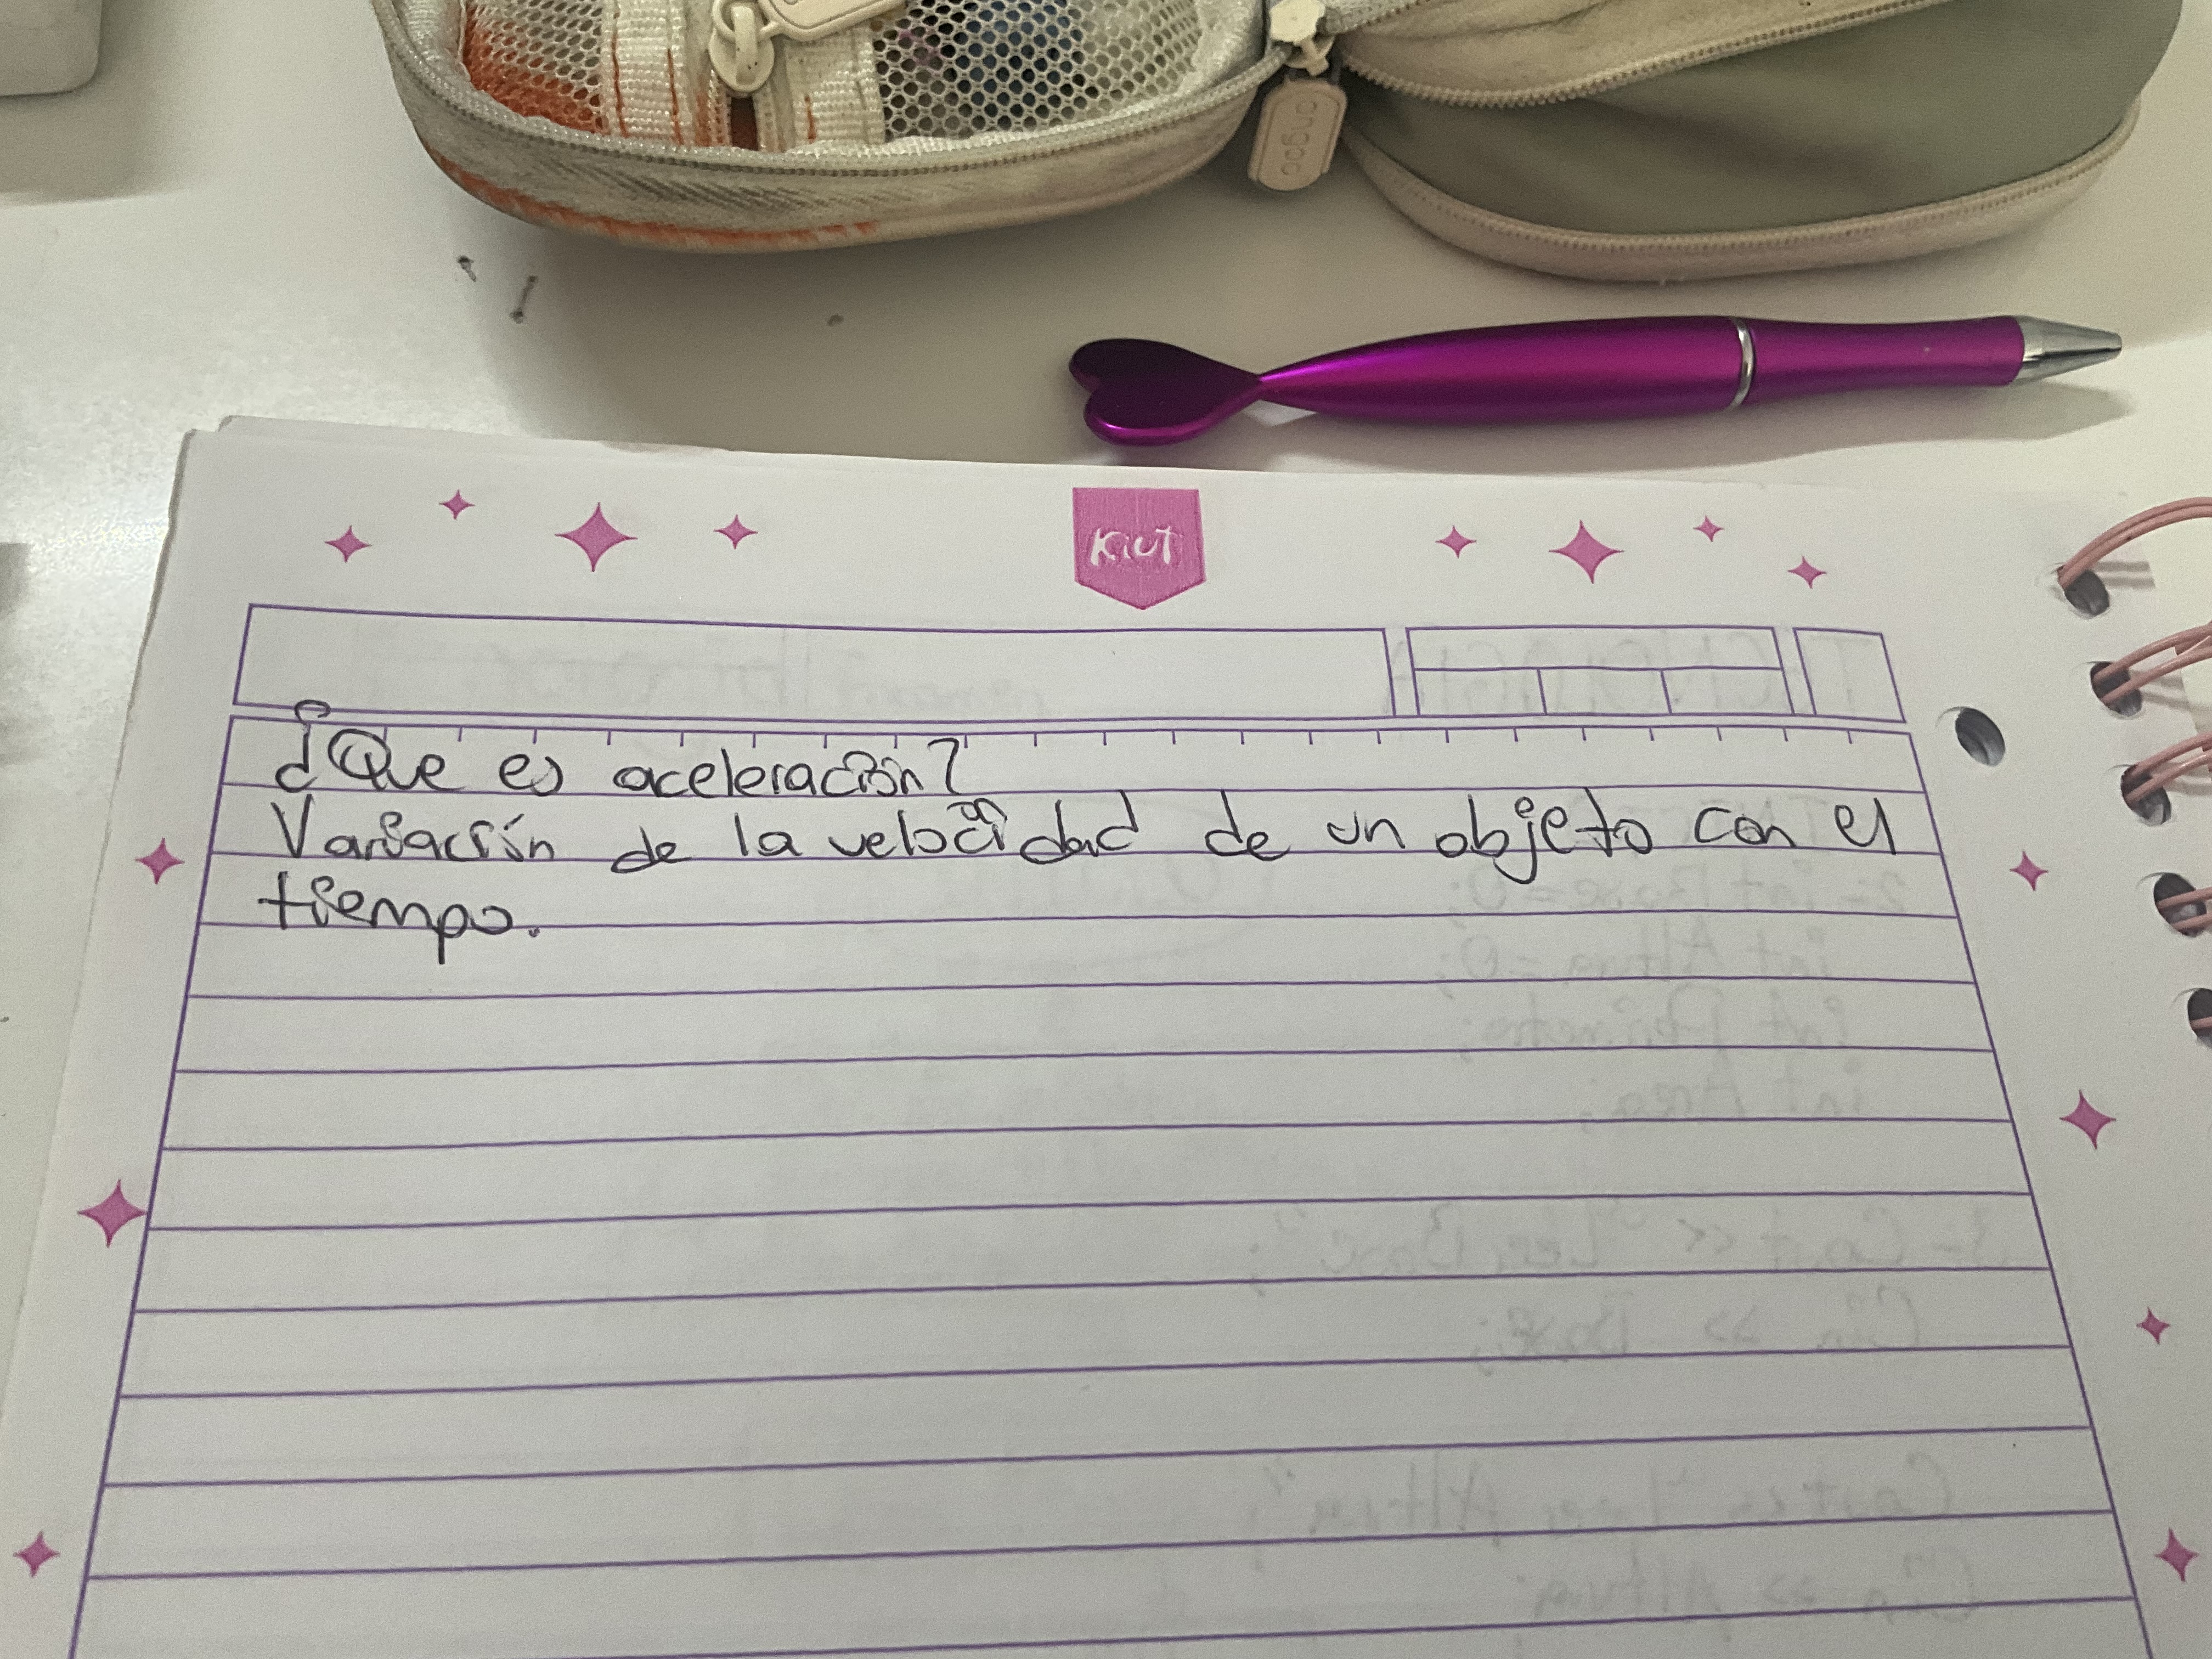 orgooc
Kiut
¿Que es aceleración?
Variación de la velocidad de un objeto con el
tiempo.